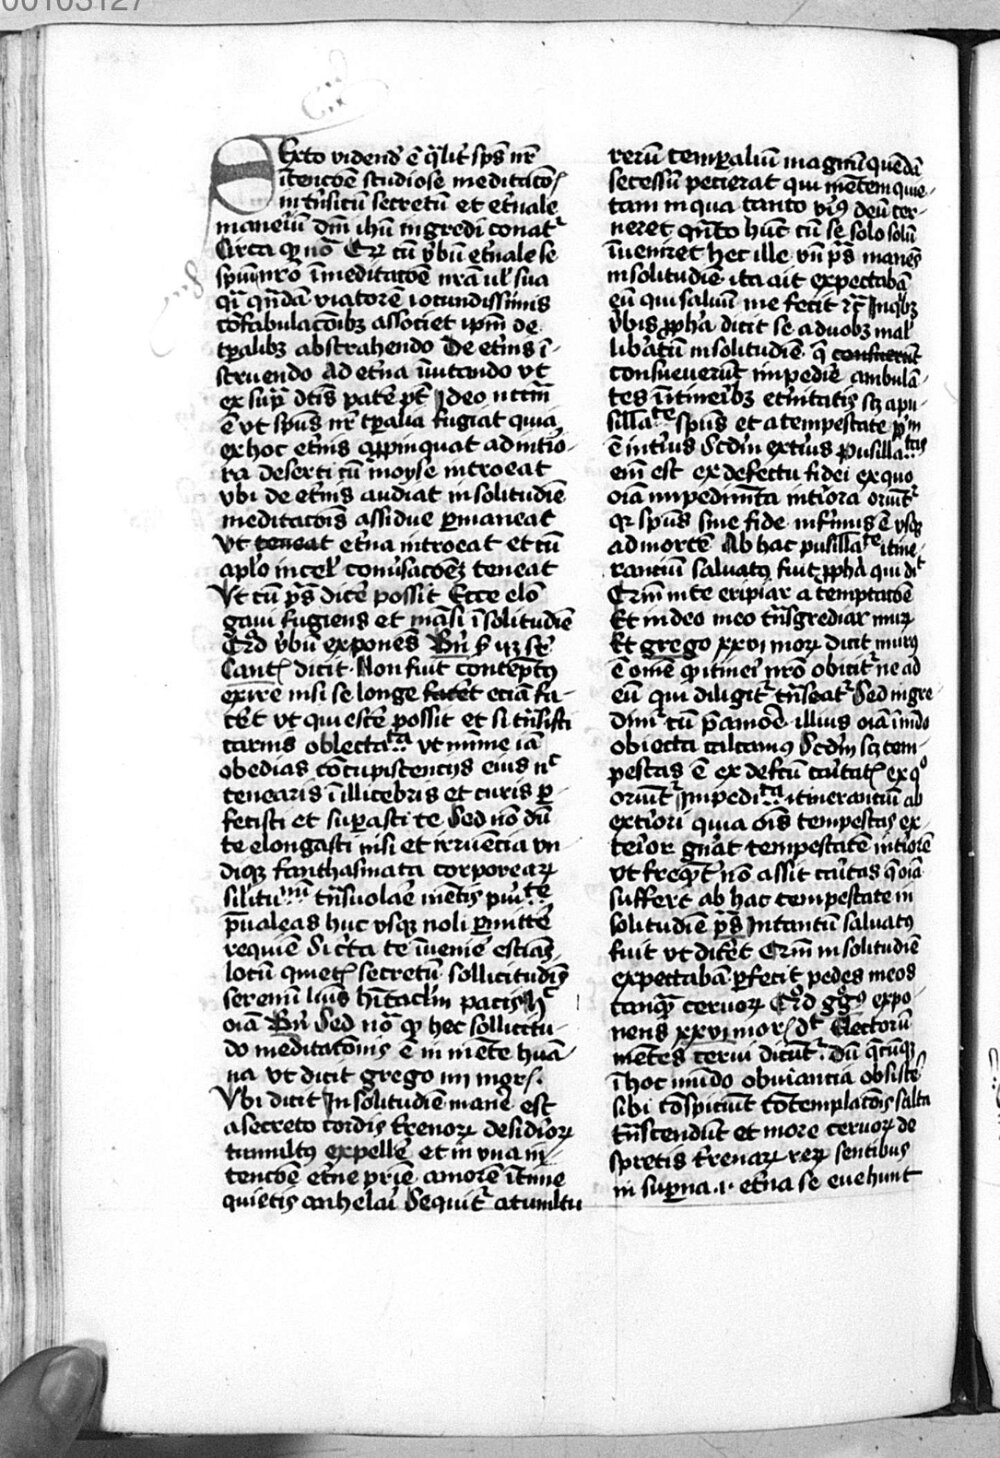 00103127
Sexto vidend' ē q̄lit' sp̄s nr̄
ītencōē studiose meditacōꝭ
in tn̄situ secretū et et'nale
maneriū dn̄i ih̄u ingredi conat᷑
Circa qđ nō Cꝝ cū v̄bū et'nale se
spūi nr̄o ī meditacōē nr̄a ul' sua
qī qn̄dā viatorē iocundissimis
cōfabulacōibꝫ associet ip̄m de
tp̄alibꝫ abstrahendo De et'nis ī-
struendo Ad et'na īuitando vt
ex sup̄ dc̄is patē pt̄ Ideo nccm̄
ē vt sp̄us nr̄ tp̄alia fugiat quia
ex hoc et'nis appīnquat ad intio-
ra deserti cū moyse introeat
vbi de et'nis audiat in solitudiē
meditacōis assidue p̄maneat
vt teneat et'na introeat et cū
ap̄lo in cel' conūsacōēꝫ teneat
Vt cū p̄s dicē possit Ecce elō
gaui fugiens et māsi ī solitudiē
Qđ v̄bū exponēs Bn̄
Cantꝭ dicit Non fuit contēptꝯ
exire nisi se longe facēt eciā fa-
cēt vt quiescē possit et si tn̄sisti
carnis oblectata vt minime iā
obedias cōcupiscencijs eius nc̄
tenearis ī illicebris et curis p̄-
fecisti et sup̄asti te Sed nō dū
te elongasti nisi et irruēcia vn
diqꝫ fanthasmata corporeaꝝ
silitu.nū tn̄suolaē mētis pūi.te
p̄ualeas huc vsqꝫ noli p̄mittē
requiē Dicta te īuenīe estias
locū quietꝭ secretū sollicitudīs
serenū hītac̄lm pacis h̄
oiā Bn̄ Sed nō qđ hec sollicitu-
do meditacōnis ē in mēte huā-
na vt dicit grego iiii morꝭ.
Vbi dicit In solitudiē manē est
a secreto cordis t'renoꝝ desidioꝝ
tumultꝯ expellē et in vna in-
tencōē et'ne pr̄ie amorē ītīne
quietis anhelaī Sequit᷑ a tumltu
rerū temp̄aliū magnū quēdā
secessū pecierat qui mētem quie-
tam in qua tanto vīꝯ deū cer-
neret qn̄to hūc cū se solo solū
īueniret hec ille vn̄ p̄s manēs
in solitudiē ita ait expectabā
eū qui saluū me fecit rc̄ Inqb̄ꝫ
v̄bis ꝓpha dicit se a duobꝫ mal'
lib'atū in solitudiē q̄ confuerūt
consueuerūt impediē ambulā-
tes ī itineribꝫ et'nitatis sꝫ a pu-
silla.te spūs et a tempestate p̄m
ē int'ius Scdm̄ ext'ius pusilla.tas
em̄ est ex defectu fidei ex quo
oīa impedimta int'iora oriūt᷑
qꝛ spūs sine fide infirmus ē vsqꝫ
ad mortē Ab hac pusilla.te itine-
ranciū saluatꝯ fuit ꝓpha qui dīt
Qm̄ in te eripiar a temptacōē
Et in deo meo tn̄sgrediar murū
Et grego xxvi moꝝ dicit murꝯ
ē om̄e qđ itineī nr̄o obicit᷑ ne ad
eū qui diligit᷑ tn̄seat᷑ Sed ingre-
dim᷑ cū p̄ amoē illius oīa ī mūdo
obiecta calcamꝯ Scdm̄ sꝫ tem-
pestas ē ex defcū caritatꝭ ex qº
oriūt᷑ Impedi.ta itineranciū ab
ext'iori quia oīs tempestas ex-
terior gn̄at tempestatē int'iorē
vt freqt̄ nō assit c̄itas q̄ oīa
suffert ab hac tempestate in
solitudiē p̄s Intantū saluatꝯ
fuit vt dicēt Qm̄ in solitudiē
expectabā p̄fecit pedes meos
tanq̄ ceruoꝝ Qđ ggꝯ expo-
nens xxvi morꝭ dt̄ Electorū
mētes cerui dicūt᷑ Dū q̄cūqꝫ
ī hoc mūdo obuiancia obsistē
sibi cōspiciūt cōtemplacōis saltu
tn̄scendūt et more ceruoꝝ de
spretis t'renaꝝ reꝝ sentibus
in sup̄na .i. et'na se euehunt